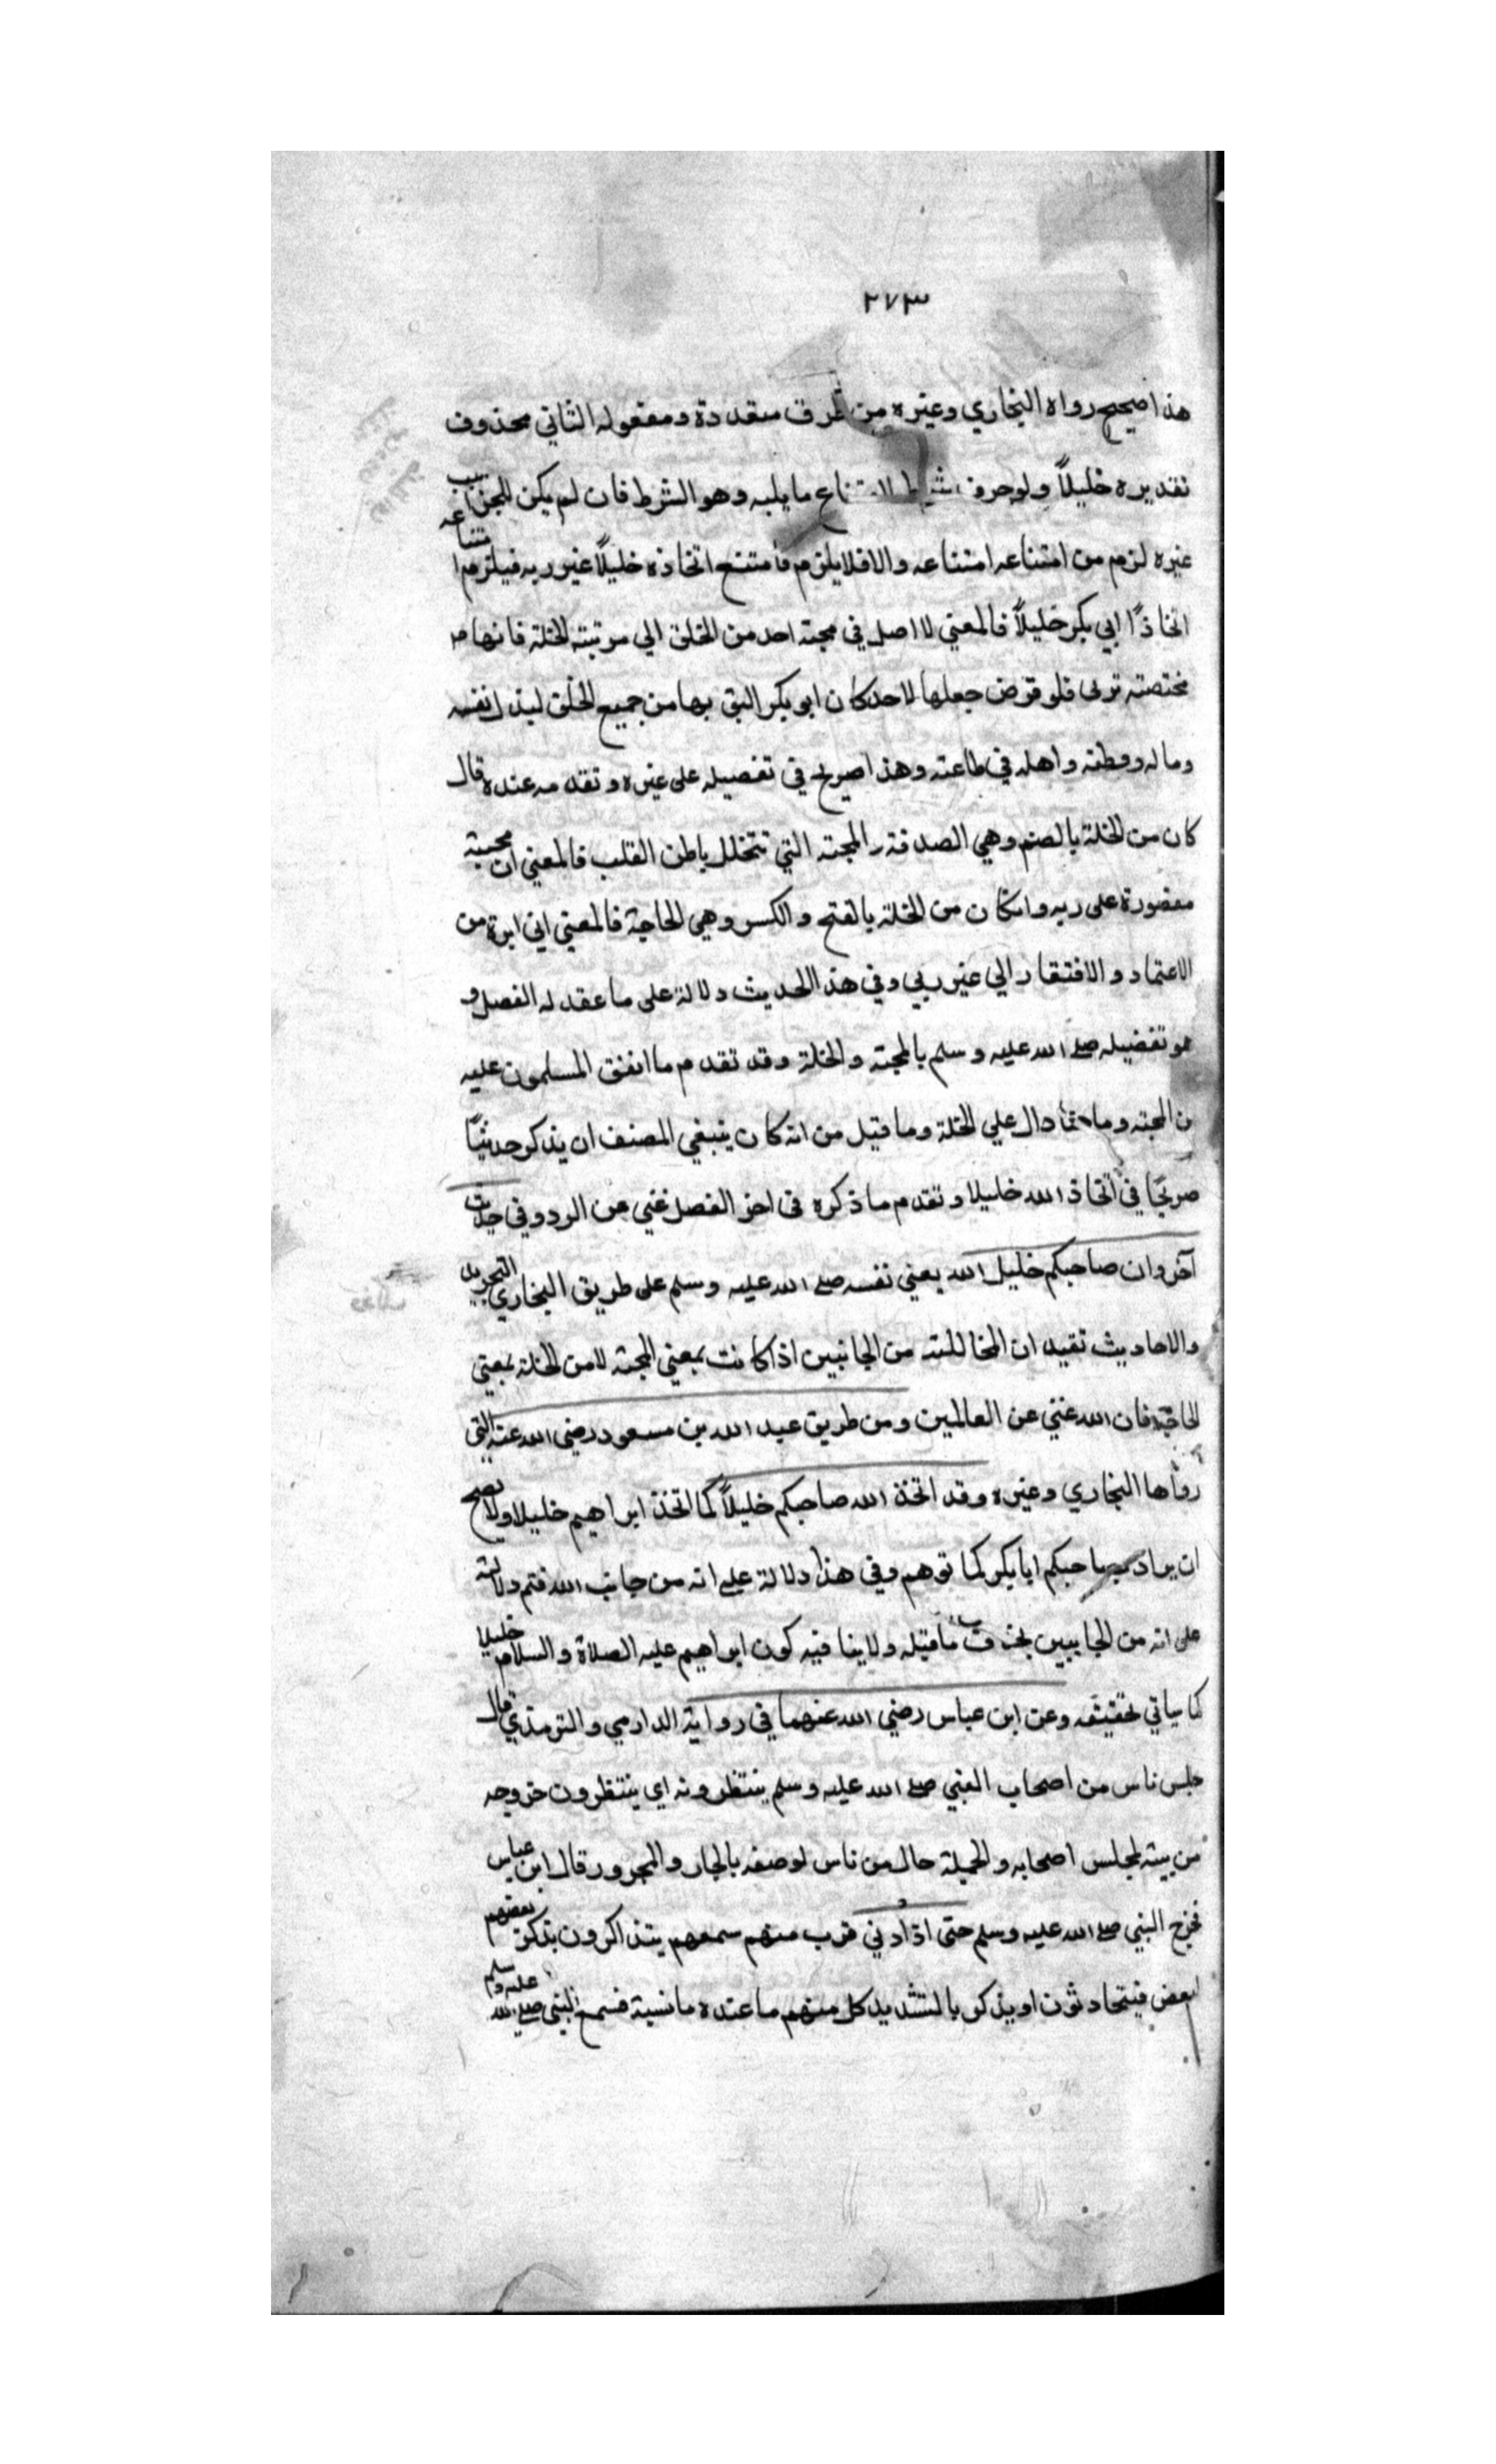 ٢٧٣
هذا صحيح رواه البخاري وغيره من طرق متعددة ومفعوله الثاني محذوف
تقديره خليلاً ولو حرف شرط لامتناع ما يليه وهو الشرط فان لم يكن للجزا سبب
غيره لزم من امتناعه امتناعه والا فلا يلزم فامتنع اتخاذه خليلاً غير ربه فيلزم امتناعه
اتخاذًا ابي بكر خليلاً فالمعني لا اصل في محبة احد من الخلق الي مرتبته الخلة فانها
مختصته بربي فلو فرض جعلها لاحد كان ابو بكر اليق بها من جميع الخلق لبذل نفسه
وماله ووطنه واهله في طاعته وهذا صريح في تفضيله على غيره وتقدمه عنده قال
كان من الخلة بالضم وهي الصداقة والمحبته التي تتخلل باطن القلب فالمعني ان محبته
مقصورة على ربه وان كان من الخلة بالفتح والكسر وهي الحاجة فالمعني اني ابرء من
الاعتماد والافتقار الي غير ربي وفي هذا الحديث دلالة على ما عقد له الفصل و
هو تفضيله صلى الله عليه وسلم بالمحبته والخلة وقد تقدم ما اتفق المسلمون عليه
من المحبته وما هنا دال علي الخلة وما قيل من انه كان ينبغي المصنف ان يذكر حديثًا
صريحًا في اتخاذ الله خليلا وتقدم ما ذكره في اخر الفصل غني عن الرد وفي حديث
آخر وان صاحبكم خليل الله يعني نفسه صلى الله عليه وسلم على طريق البخاري التجريد
والاحاديث تفيد ان المخاللته من الجانبين اذا كانت بمعني المحبته لا من الخلة بمعني
الحاجة فان الله غني عن العالمين ومن طريق عبد الله بن مسعود رضى الله عنه التى
رواها البخاري وغيره وقد اتخذ الله صاحبكم خليلاً كما اتخذ ابراهيم خليلا ولا يصح
ان يراد بصاحبكم ابا بكر كما توهم وفي هذا دلالة على انه من جانب الله فتم دلالته
على انه من الجانبين بخلاف ما قبله ولا ينا فيه كون ابراهيم عليه الصلاة والسلام خليلا
كما سياتي تحقيقه وعن ابن عباس رضي الله عنهما في رواية الدارمي والترمذي قال
جلس ناس من اصحاب النبي صلى الله عليه وسلم ينتظرونه اي ينتظرون خروجه
من بيته لمجلس اصحابه والجملة حال من ناس لوصفه بالجار والمجرور قال ابن عباس
فخرج النبي صلى الله عليه وسلم حتى اذا دني قرب منهم سمعهم يتذاكرون بذكر بعضهم
لبعض فيتحادثون او يذكر بالتشديد كل منهم ما عنده ما نسية فسمع النبي صلى الله عليه وسلم